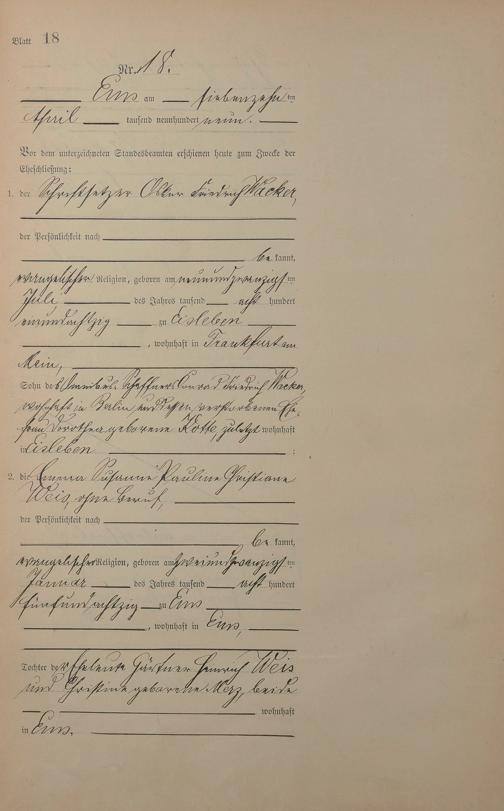 Blatt 18
Nr. 18.
Ems am siebenzehn ten
April tausend neunhundert neun.
Vor dem unterzeichneten Standesbeamten erschienen heute zum Zwecke der
Eheschließung:
1. der Schriftsetzer Oskar Friedrich Wacker,
der Persönlichkeit nach
be kannt,
evangelischer Religion, geboren am neunundzwanzigsten
Juli des Jahres tausend acht hundert
einundachtzig zu Eisleben
, wohnhaft in Frankfurt am
Main,
Sohn des Schaffners Conrad Friedrich Wacker,
wohnhaft in Berlin und dessen verstorbenen Ehe-
frau Dorothea geborene Kotte, zuletzt wohnhaft
in Eisleben :
2. die Emma Susanne Pauline Christiane
Weis, ohne Beruf,
der Persönlichkeit nach
be kannt,
evangelischer Religion, geboren am zweiundzwanzigsten
Januar des Jahres tausend acht hundert
fünfundachtzig zu Ems
, wohnhaft in Ems,
Tochter der Eheleute Gärtner Heinrich Weis
und Christine geborene Merz, beide
wohnhaft
in Ems.